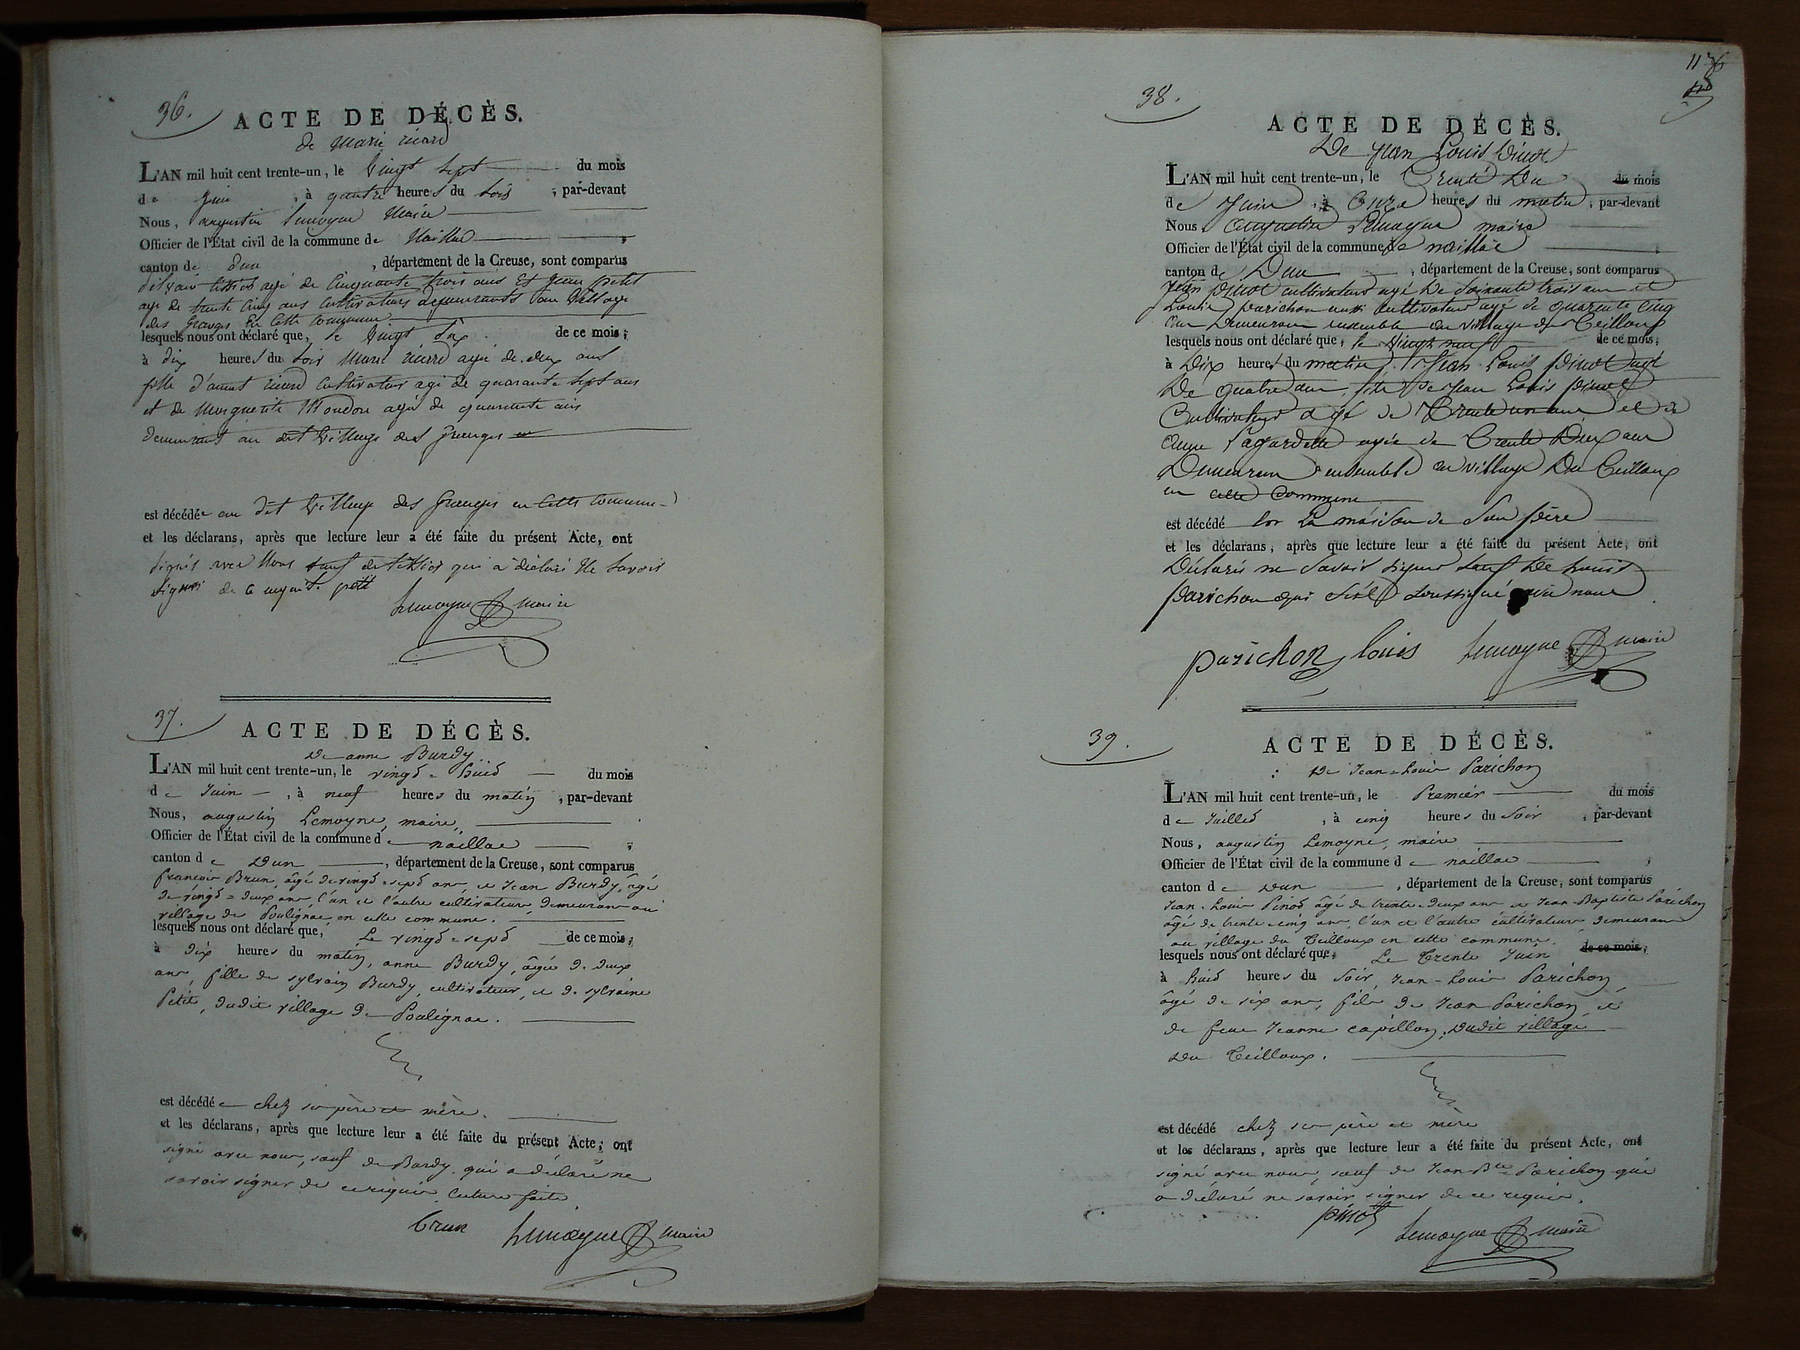 36.
ACTE DE DÉCÈS.
de Marie ricard
L'AN mil huit cent trente-un, le Vingt sept du mois
de Juin, à quatre heures du Soir, par-devant
Nous, augustin Lemoyne Maire
Officier de l'État civil de la commune de Naillac
canton de dun, département de la Creuse, sont comparus
agé de Cinquante trois ans Et Jean petit
agé de trente Cinq ans Cultivateurs demeurants au Village
des Granges En Cette Commune
lesquels nous ont déclaré que, le Vingt Six de ce mois,
à dix heures du Soir Marie ricard agée de deux ans
fille d'annet ricard Cultivateur agé de quarante Sept ans
et de Marguerite Moudon agée de quarante ans
demeurant au dit Village des Granges
est décédée au dit Village des Granges en Cette Commune
et les déclarans, après que lecture leur a été faite du présent Acte, ont
Signés avec Nous Sauf de qui a déclaré Ne Savoir
Signer de Ce requit. petit
Lemoyne maire
37.
ACTE DE DÉCÈS.
De anne Burdy
L'AN mil huit cent trente-un, le vingt-huit du mois
de Juin, à neuf heures du matin, par-devant
Nous, augustin Lemoyne, maire,
Officier de l'État civil de la commune de naillac
canton de Dun, département de la Creuse, sont comparus
françois Brun, âgé de vingt-sept ans, et Jean Burdy, âgé
de vingt-deux ans, l'un et l'autre cultivateurs, demeurans au
village de Poulignac, en cette commune.
lesquels nous ont déclaré que, Le vingt-sept de ce mois,
à dix heures du matin, anne Burdy, âgée de deux
ans, fille de sylvain Burdy, cultivateur, et de sylvaine
Petit, dudit village de Poulignac.
est décédée chez ses père et mère.
et les déclarans, après que lecture leur a été faite du présent Acte, ont
signé avec nous, sauf de Burdy, qui a déclaré ne
savoir signer de ce requis, lecture faite.
brun Lemoyne maire
38.
ACTE DE DÉCÈS.
De Jean Louis Pinot
L'AN mil huit cent trente-un, le Trente Du du mois
de Juin, à Onze heures du matin, par-devant
Nous Augustin Lemoyne maire
Officier de l'État civil de la commune de naillac
canton de Dun, département de la Creuse, sont comparus
Jean Pinot cultivateur agé De Soixante trois ans et
Louis Parichon aussi cultivateur agé de quarante cinq
ans Demeurans ensemble au village du Teilloux
lesquels nous ont déclaré que, le Vingt neuf de ce mois,
à Dix heures du matin, Jean Louis Pinot agé
De quatre ans, fils De Jean Louis Pinot
Cultivateur agé de Trente un ans et de
Anne Lagardette agée de Trente Deux ans
Demeurans ensemble au village Du Teilloux
en cette Commune
est décédé dans La maison de Son père
et les déclarans, après que lecture leur a été faite du présent Acte, ont
Déclaré ne Savoir Signer Sauf De Louis
Parichon qui s'est Soussigné avec nous
parichon louis Lemoyne maire
39.
ACTE DE DÉCÈS.
De Jean-Louis Parichon
L'AN mil huit cent trente-un, le Premier du mois
de Juillet, à cinq heures du Soir, par-devant
Nous, augustin Lemoyne, maire
Officier de l'État civil de la commune de naillac
canton de Dun, département de la Creuse, sont comparus
Jean-Louis Pinot, âgé de trente-deux ans, et Jean-Baptiste Parichon
âgé de trente-cinq ans, l'un et l'autre cultivateurs, demeurans
au village du Teilloux en cette commune.
lesquels nous ont déclaré que, Le Trente Juin de ce mois,
à huit heures du Soir, Jean-Louis Parichon,
âgé de six ans, fils de Jean Parichon, et
de feue Jeanne Capillon, dudit village
du Teilloux.
est décédé chez ses père et mère
et les déclarans, après que lecture leur a été faite du présent Acte, ont
signé avec nous, sauf de Jean-Bte Parichon qui
a déclaré ne savoir signer de ce requis.
pinot
Lemoyne maire